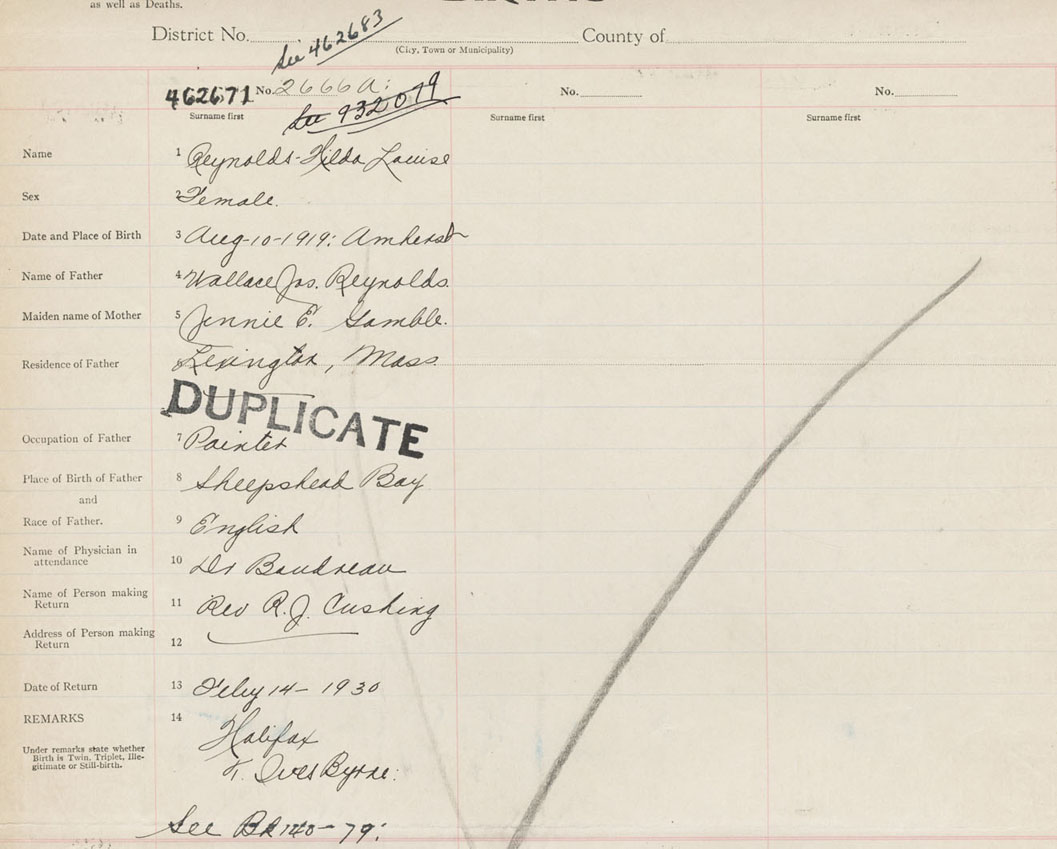 as well as Deaths.
See 462683
District No. County of
(City, Town or Municipality)
462671 No. 2666 A: No. No.
See 932079
Surname first Surname first Surname first
Name 1 Reynolds-Hilda Louise
Sex 2 Female.
Date and Place of Birth 3 Aug-10-1919: Amherst
Name of Father 4 Wallace Jos. Reynolds.
Maiden name of Mother 5 Jennie E. Gamble.
Residence of Father 6 Lexington, Mass.
DUPLICATE
Occupation of Father 7 Painter
Place of Birth of Father 8 Sheepshead Bay
and
Race of Father. 9 English
Name of Physician in
attendance 10 Dr Boudreau
Name of Person making
Return 11 Rev R. J. Cushing
Address of Person making
Return 12
Date of Return 13 Feby 14-1930
REMARKS 14
Halifax
Under remarks state whether
Birth is Twin, Triplet, Ille-
gitimate or Still-birth.
T. Ives Byrne:
See BR 140-79: